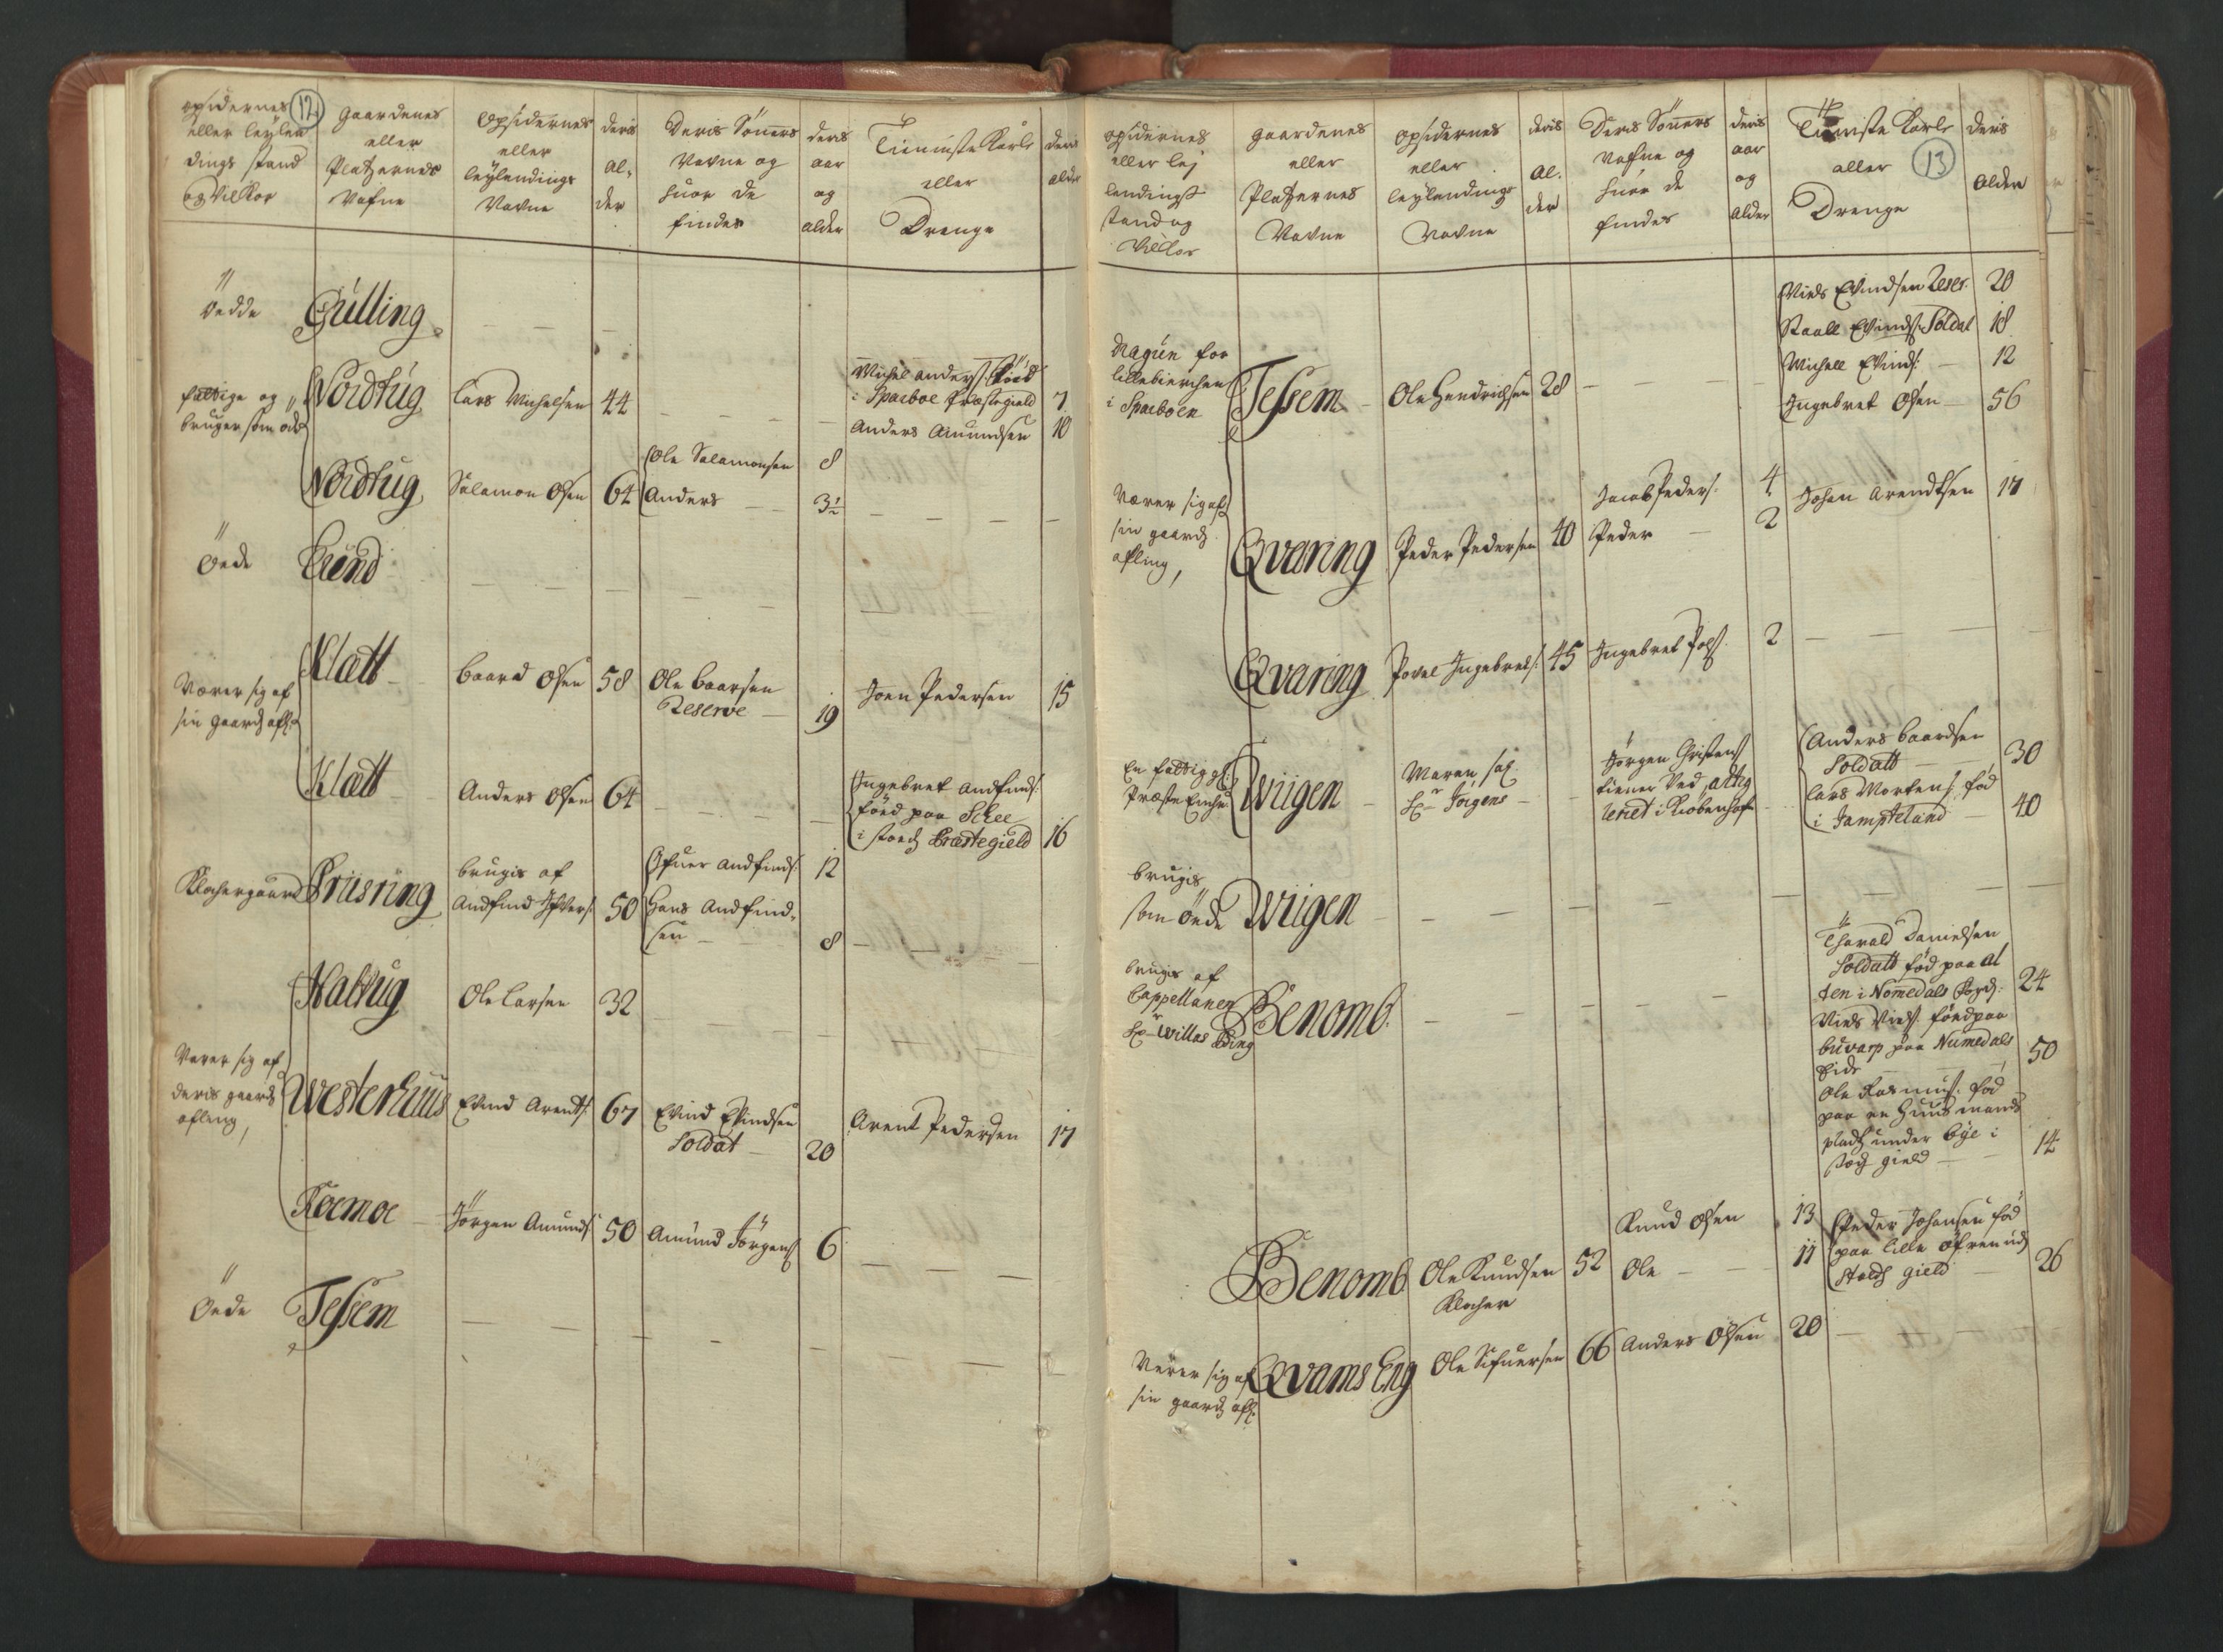 12
opsidernes eller leylendings stand og Vilkor
Gaardenes eller Pladzernes Nafne
Opsidernes eller leylendings Navne
deris Alder
Deris Sönners Navne og huor de findes
deris aar og alder
Tieniste Karle eller Drenge
deris alder
Öede Gulling
fattige og bruger som öde
Nordtug
Lars Michelsen 44
Michel Anders: föed i Sparboe Præstegield 7
Anders Amundsen 10
Nordtug Salamon Olsen 64
Ole Salamonsen 8
Anders 3½
Öede
Nærer sig af sin gaards afl:
Klætt
Baard Olsen 58
Ole Baarsen Reserve 19
Joen Pedersen 15
Klætt
Anders Olsen 64
Ingebret Andfinds: föed paa
i Præstegield 16
Klochergaard
Brüsring
brugis af Andfind 50
Andfinds: 12
Hans Andfindsen 8
Haltug
Ole Larsen 32
Nærer sig af deris gaards afling,
Westerhuus
Evind Arents: 67
Evind Evindsen Soldat 20
Arent Pedersen 17
Roemoe
Jörgen Amunds: 50
Amund Jörgens: 6
Öede
Tessem
13
opsidernes eller leylendings stand og Vilkor
gaardenes eller Pladzernes Navne
opsidernes eller leylendings Navne
deris Alder
Deris Sönners Nafne og huor de findes
deris aar og alder
Tieniste Karle eller Drenge
deris Alder
Niels Evindsen Reser: 20
Staall Evinds: Soldat 18
Michell Evinds: 12
Ingebret Olsen 56
Dragun for lillebierchen i Sparboen
Tessem
Ole Hendrichsen 28
Nærer sig af sin gaards afling,
Qvaring
Peder Pedersen 40
Jacob Peders: 4
Peder 2
Johan Arendtsen 17
Qvaring
Povel Ingebrets: 45
Ingebret Pols: 2
En fattig Præste Enche
Wiigen
Maren sal. Hr Jörgens
Jörgen Christens: tiener ved Artigleriet i Kiöbenhafn
Anders Baardsen Soldatt 30
Lars Mortens: föd i Jampteland 40
brugis som öede
Wiigen
brugis af Cappellanen Hr Willas Bing
Benomb.
Tharald Danielsen Soldatt föd paa
i Nommedals 24
Niels Niels: föed paa
paa Numedals Eide 50
Ole Rasmus: föd paa en Huusmands plads under Bye i
gield 14
Benomb
Ole Knudsen Klocher 52
Knud Olsen 13
Ole 11
Peder Johansen föd paa lille
gield 26
Nærer sig af sin gaards afl:
Qvams Eng
Ole Sifuersen 66
Anders Olsen 20